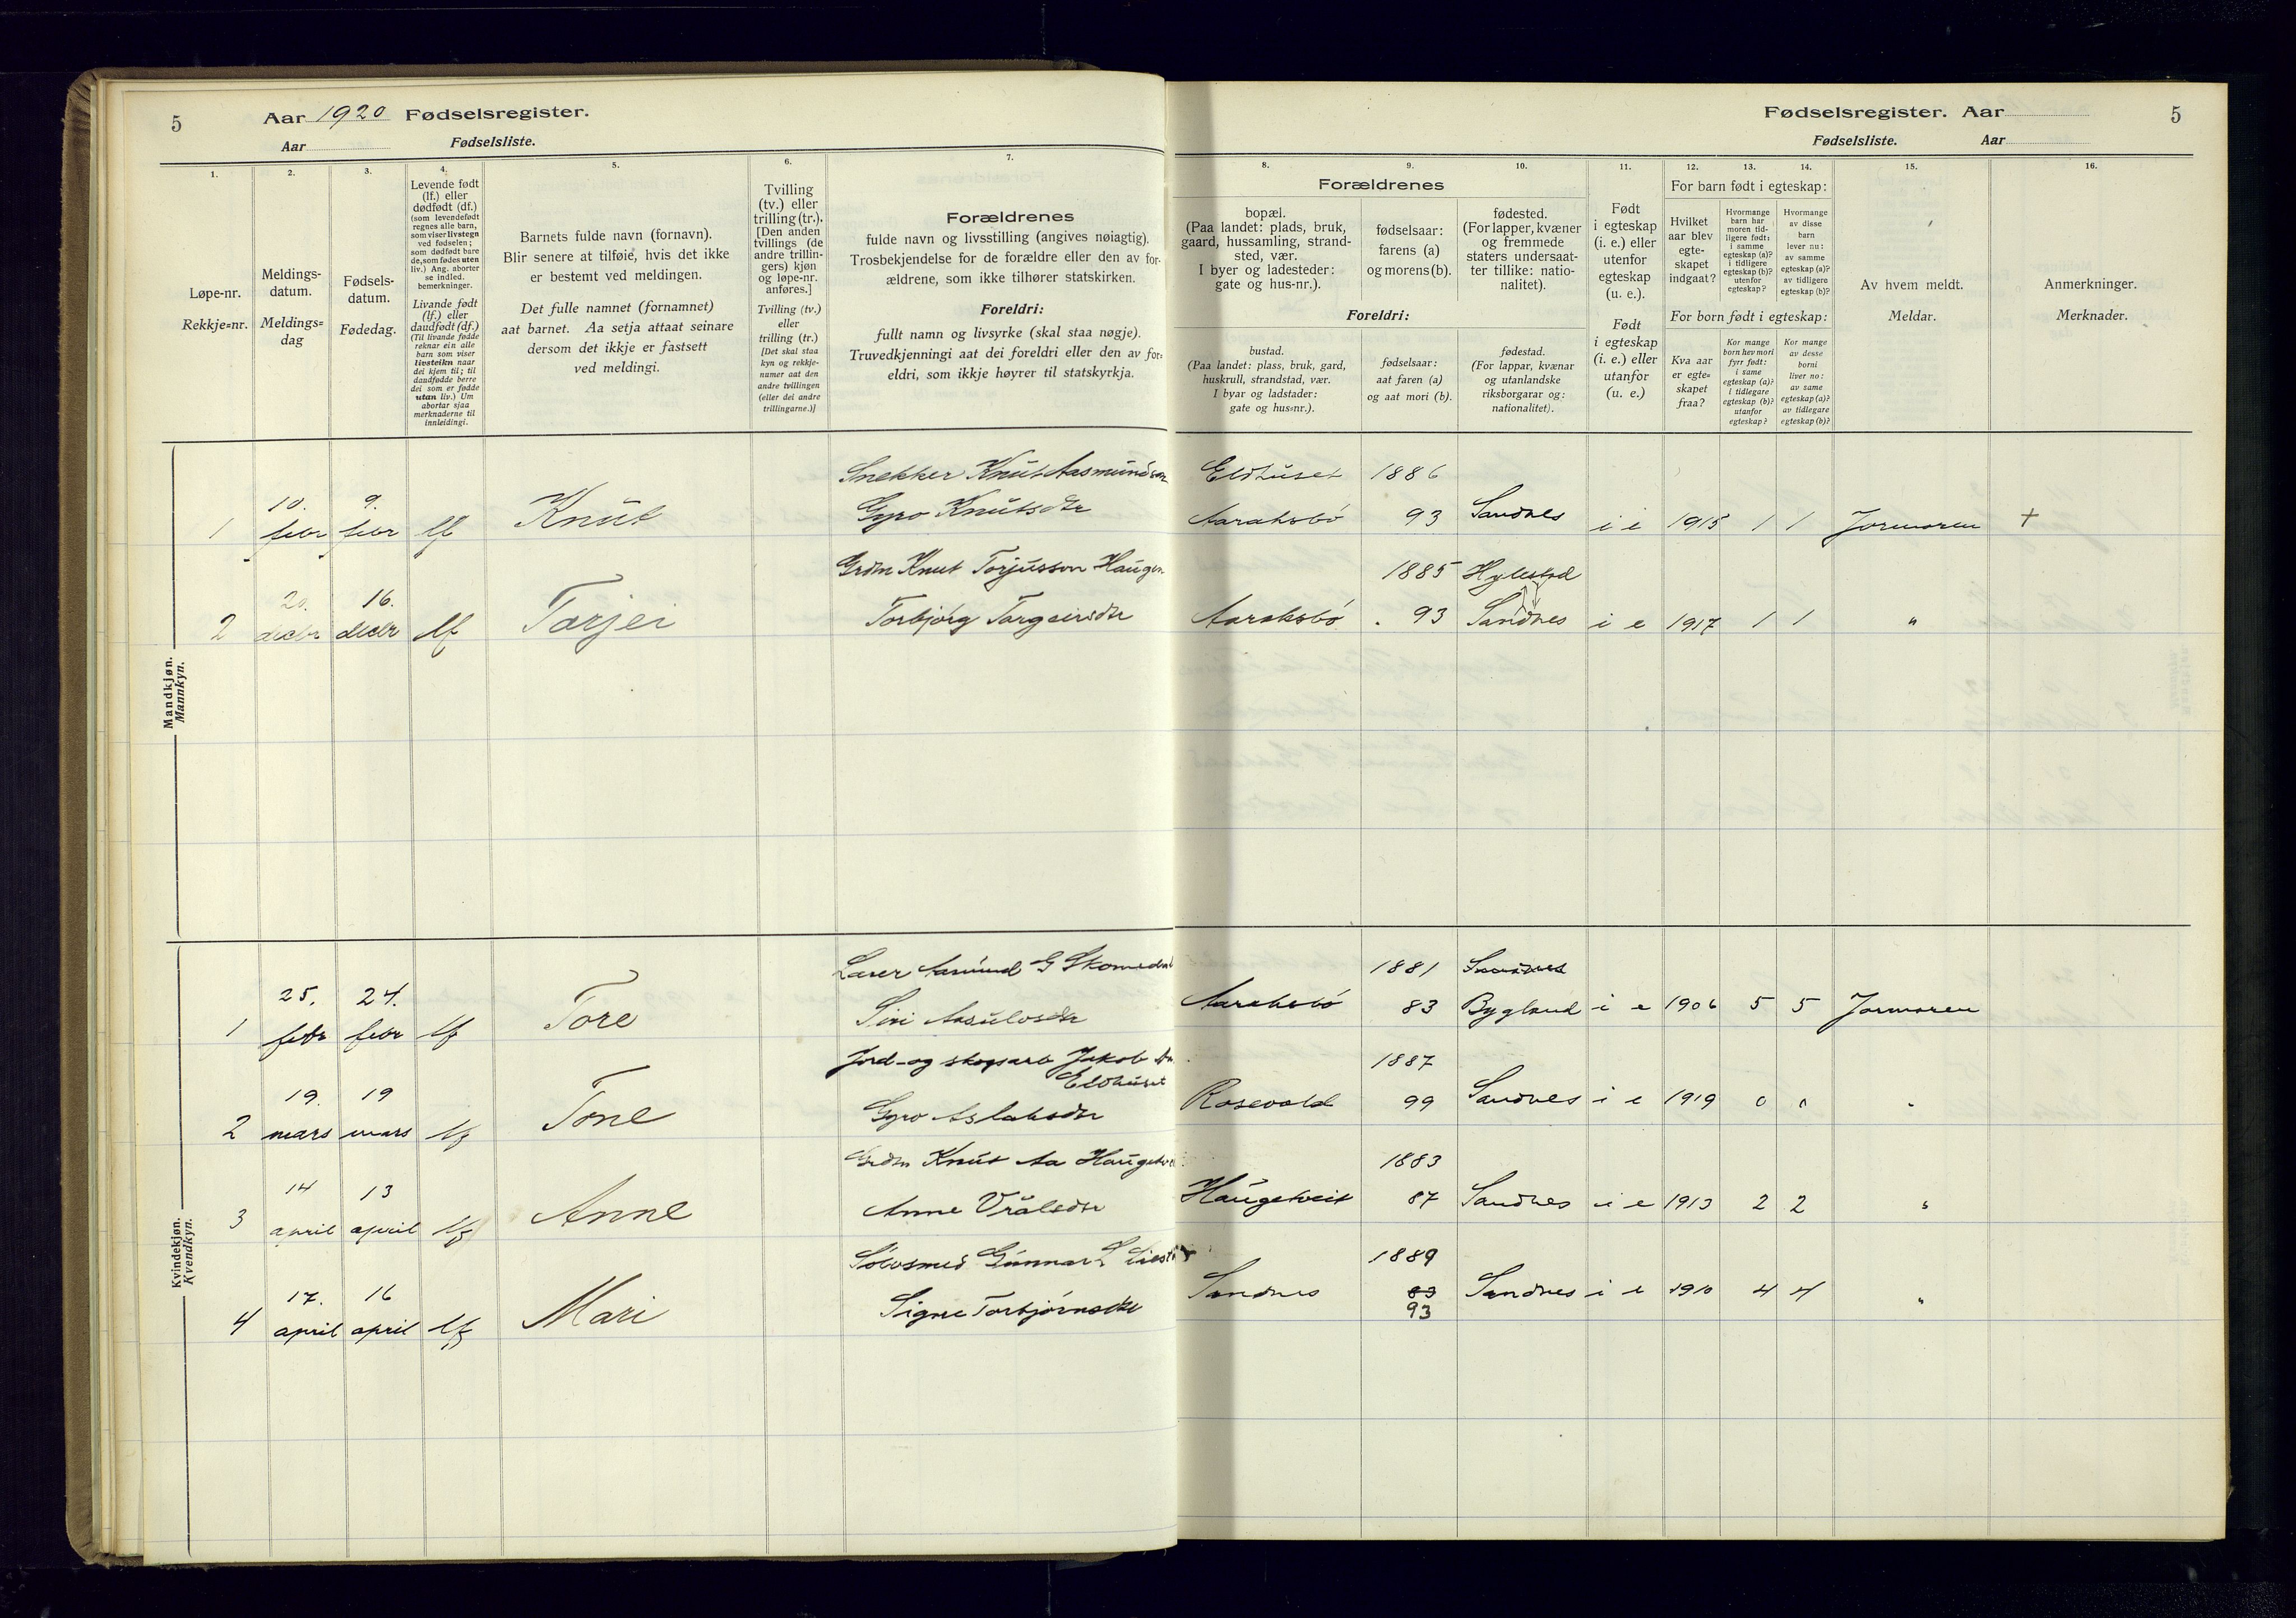 5
Aar 1920 Fødselsregister.
Aar Fødselsliste.
1.
2.
3.
4.
5.
6.
7.
Løpe-nr.
Rekkje=nr.
Meldings-
datum.
Meldings=
dag
Fødsels-
datum.
Fødedag.
Levende født
(lf.) eller
dødfødt (df.)
(som levendefødt
regnes alle barn,
som viser livstegn
ved fødselen;
som dødfødt bare
de, som fødes uten
liv.) Ang. aborter
se indled.
bemerkninger.
Livande født
(lf.) eller
daudfødt (df.)
(Til livande fødde
reknar ein alle
barn som viser
livsteikn naar
dei kjem til; til
daudfødde berre
dei som er fødde
utan liv.) Um
abortar sjaa
merknaderne til
innleidingi.
Barnets fulde navn (fornavn).
Blir senere at tilføie, hvis det ikke
er bestemt ved meldingen.
Det fulle namnet (fornamnet)
aat barnet. Aa setja attaat seinare
dersom det ikkje er fastsett
ved meldingi.
Tvilling
(tv.) eller
trilling (tr.).
[Den anden
tvillings (de
andre trillin-
gers) kjøn
og løpe-nr.
anføres.]
Tvilling (tv.)
eller
trilling (tr.)
[Det skal staa
kyn og rekkje-
numer aat den
andre tvillingen
(eller dei andre
trillingarne.)]
Forældrenes
fulde navn og livsstilling (angives nøiagtig).
Trosbekjendelse for de forældre eller den av for-
ældrene, som ikke tilhører statskirken.
Foreldri:
fullt namn og livsyrke (skal staa nøgje).
Truvedkjenningi aat dei foreldri eller den av for-
eldri, som ikkje høyrer til statskyrkja.
Mandkjøn.
Mannkyn.
Snekker Knut Aasmundson
10. 9.
1 febr febr lf Knut Gyro Knutsdtr
Grdm Knut Torjusson Haugen
20. 16.
2 decbr decbr lf Tarjei Torbjørg Targeirsdtr
Kvindekjøn.
Kvendkyn.
25. 24.
1 febr febr lf Tore Siri Aasulvsdtr
Jord- og skogsarb Jakob
Eldhuset
19. 19
2 mars mars lf Tone Gyro Aslaksdtr
Grdm Knut Aa Haugetveit
14 13
3 april april lf Anne Anne Vraalsdtr
Sølvsmed Gunnar L
17. 16
4 april april lf Mari Signe Torbjørnsdtr
Fødselsregister. Aar 5
Fødselsliste. Aar
8.
9.
10.
11.
12.
13.
14.
15.
16.
Forældrenes
bopæl.
(Paa landet: plads, bruk,
gaard, hussamling, strand-
sted, vær.
I byer og ladesteder:
gate og hus-nr.).
fødselsaar:
farens (a)
og morens (b).
fødested.
(For lapper, kvæner
og fremmede
staters undersaat-
ter tillike: natio-
nalitet).
Foreldri:
bustad.
(Paa landet: plass, bruk, gard,
huskrull, strandstad, vær.
I byar og ladstader:
gate og hus=nr.).
fødselsaar:
aat faren (a)
og aat mori (b).
fødestad.
(For lappar, kvænar
og utanlandske
riksborgarar og:
nationalitet).
Født
i egteskap
(i. e.) eller
utenfor
egteskap
(u. e.).
Født
i egteskap
(i. e.) eller
utanfor
(u. e.)
For barn født i egteskap:
Hvilket
aar blev
egte-
skapet
indgaat?
Hvormange
barn har
moren tid-
ligere født:
i samme
egteskap (a)?
i tidligere
egteskap (b)?
utenfor
egteskap?
Hvormange
av disse
barn
lever nu:
av samme
egteskap (a)?
av tidligere
egteskap (b)?
For born født i egteskap:
Kva aar
er egte=
skapet
fraa?
Kor mange
born hev mori
fyrr født:
i same
egteskap (a)?
i tidlegare
egteskap (b)?
utanfor
egteskap?
Kor mange
av desse
borni
liver no:
av same
egteskap (a)?
av tidlegare
egteskap (b)?
Av hvem meldt.
Meldar.
Anmerkninger.
Merknader.
Eldhuset 1886
Aaraksbø 93 Sandnes i e 1915 1 1 Jormoren +
1885 Hylestad
Aaraksbø . 93 Sandnes i e 1917 1 1 "
1881 Sandnes
Aaraksbø 83 Bygland i e 1906 5 5 Jormoren
1887
Rosevold 99 Sandnes i e 1919 0 0 "
1883
Haugetveit 87 Sandnes i e 1913 2 2 "
1889
Sandnes 83 Sandnes i e 1910 4 4 "
93